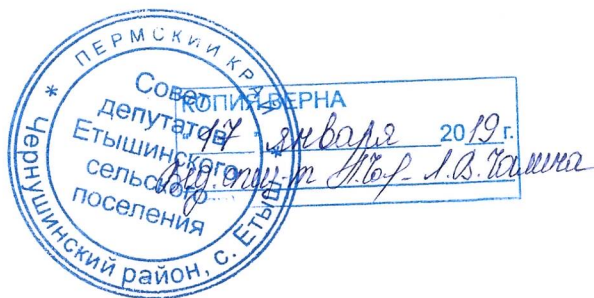 * ПЕРМСКИЙ КРАЙ *
Чернушинский район, с. Етыш
Совет
депутатов
Етышинского
сельского
поселения
КОПИЯ ВЕРНА
17 января 2019 г.
Вед. спец-т